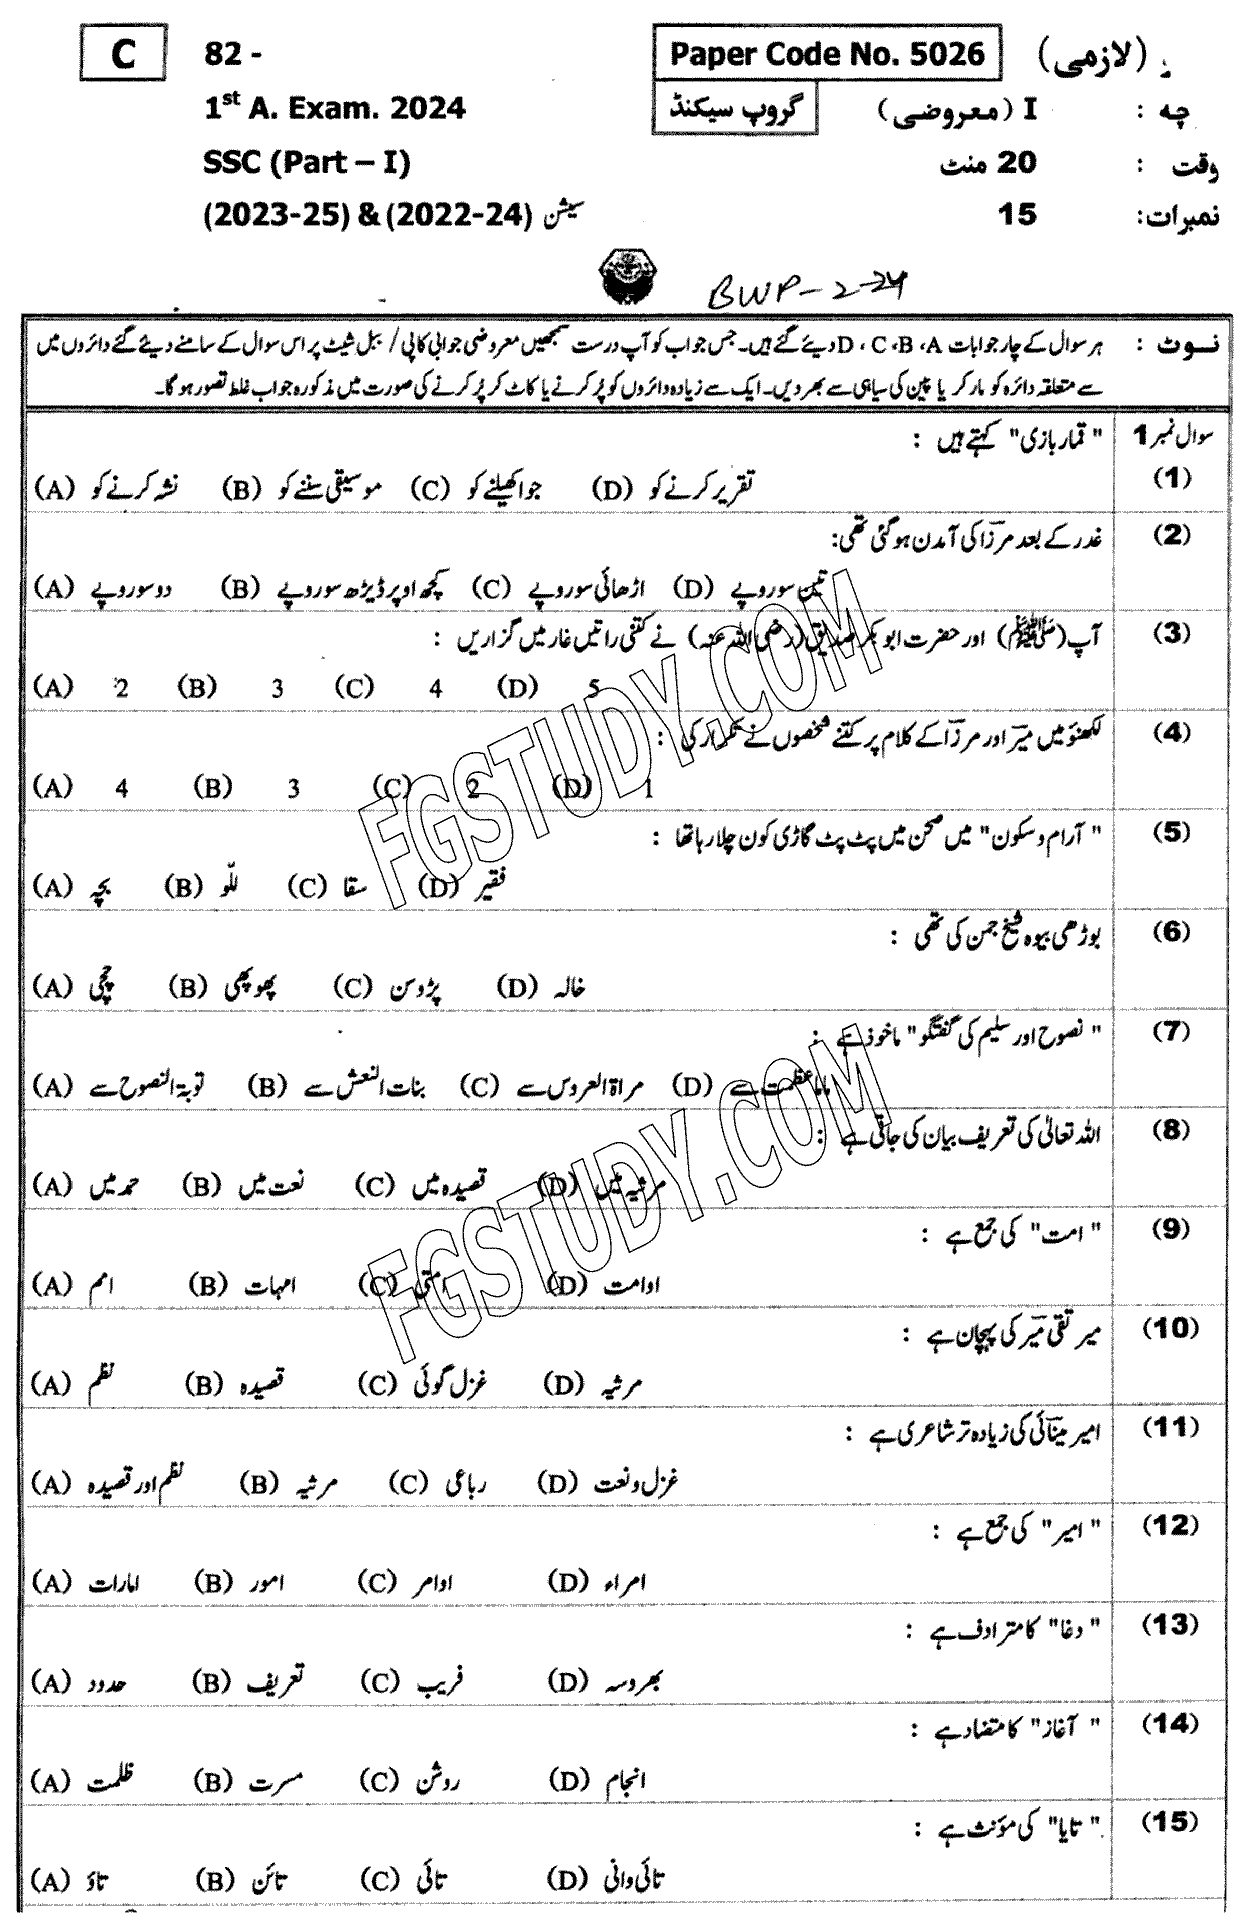 C
82 -
Paper Code No. 5026
(لازمی)
1st A. Exam. 2024
گروپ سیکنڈ
I (معروضی)
چہ :
SSC (Part – I)
وقت : 20 منٹ
سیشن (2022-24) & (2023-25)
نمبرات: 15
BWP-2-24
نوٹ : ہر سوال کے چار جوابات A، B، C، D دیئے گئے ہیں۔ جس جواب کو آپ درست سمجھیں معروضی جوابی کاپی / ببل شیٹ پر اس سوال کے سامنے دیئے گئے دائروں میں
سے متعلقہ دائرہ کو مارکر یا پین کی سیاہی سے بھر دیں۔ ایک سے زیادہ دائروں کو پُر کرنے یا کاٹ کر پُر کرنے کی صورت میں مذکورہ جواب غلط تصور ہو گا۔
سوال نمبر 1 "قمار بازی" کہتے ہیں :
(1)
(A) نشہ کرنے کو (B) موسیقی سننے کو (C) جوا کھیلنے کو (D) تقریر کرنے کو
(2) غدر کے بعد مرزا کی آمدن ہو گئی تھی:
(A) دو سو روپے (B) کچھ اوپر ڈیڑھ سو روپے (C) اڑھائی سو روپے (D) تین سو روپے
(3) آپ (ﷺ) اور حضرت ابو بکر صدیق (رضی اللہ عنہ) نے کتنی راتیں غار میں گزاریں :
(A) 2 (B) 3 (C) 4 (D) 5
(4) لکھنؤ میں میر اور مرزا کے کلام پر کتنے شخصوں نے تکرار کی :
(A) 4 (B) 3 (C) 2 (D) 1
(5) "آرام و سکون" میں صحن میں پٹ پٹ گاڑی کون چلا رہا تھا :
(A) بچہ (B) للّو (C) سقا (D) فقیر
(6) بوڑھی بیوہ شیخ جمن کی تھی :
(A) چچی (B) پھوپھی (C) پڑوسن (D) خالہ
(7) "نصوح اور سلیم کی گفتگو" ماخوذ ہے :
(A) توبۃ النصوح سے (B) بنات النعش سے (C) مراۃ العروس سے (D) ماما عظمت سے
(8) اللہ تعالیٰ کی تعریف بیان کی جاتی ہے :
(A) حمد میں (B) نعت میں (C) قصیدہ میں (D) مرثیہ میں
(9) "امت" کی جمع ہے :
(A) امم (B) امہات (C) امتی (D) اوامت
(10) میر تقی میر کی پہچان ہے :
(A) نظم (B) قصیدہ (C) غزل گوئی (D) مرثیہ
(11) امیر مینائی کی زیادہ تر شاعری ہے :
(A) نظم اور قصیدہ (B) مرثیہ (C) رباعی (D) غزل و نعت
(12) "امیر" کی جمع ہے :
(A) امارات (B) امور (C) اوامر (D) امراء
(13) "دغا" کا مترادف ہے :
(A) حدود (B) تعریف (C) فریب (D) بھروسہ
(14) "آغاز" کا متضاد ہے :
(A) ظلمت (B) مسرت (C) روشن (D) انجام
(15) "تایا" کی مؤنث ہے :
(A) تاؤ (B) تائن (C) تائی (D) تائی وانی
FGSTUDY.COM
FGSTUDY.COM